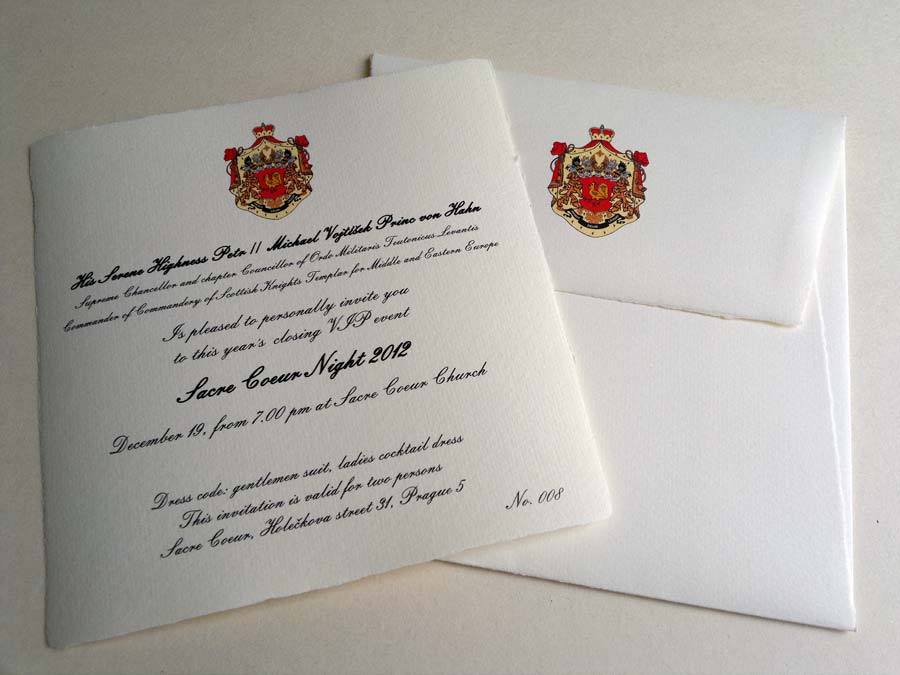 His Serene Highness Petr II Michael Vojtíšek Princ von Hahn
Supreme Chancellor and chapter Councillor of Ordo Militaris Teutonicus Levantis
Commander of Commandery of Scottish Knights Templar for Middle and Eastern Europe
Is pleased to personally invite you
to this year's closing VIP event
Sacre Coeur Night 2012
December 19, from 7.00 pm at Sacre Coeur Church
Dress code: gentlemen suit, ladies cocktail dress
This invitation is valid for two persons
Sacre Coeur, Holečkova street 31, Prague 5
No. 008